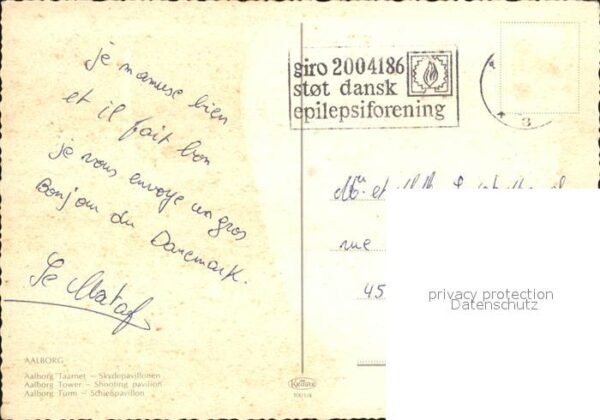 je m'amuse bien
et il fait bon
je vous envoye un gros
Bonjour du Danemark.
giro 2004186
støt dansk
epilepsiforening
3
et
rue
45
privacy protection
Datenschutz
AALBORG
Aalborg Taarnet – Skydepavillonen
Aalborg Tower – Shooting pavilion
Aalborg Turm – Schießpavillon